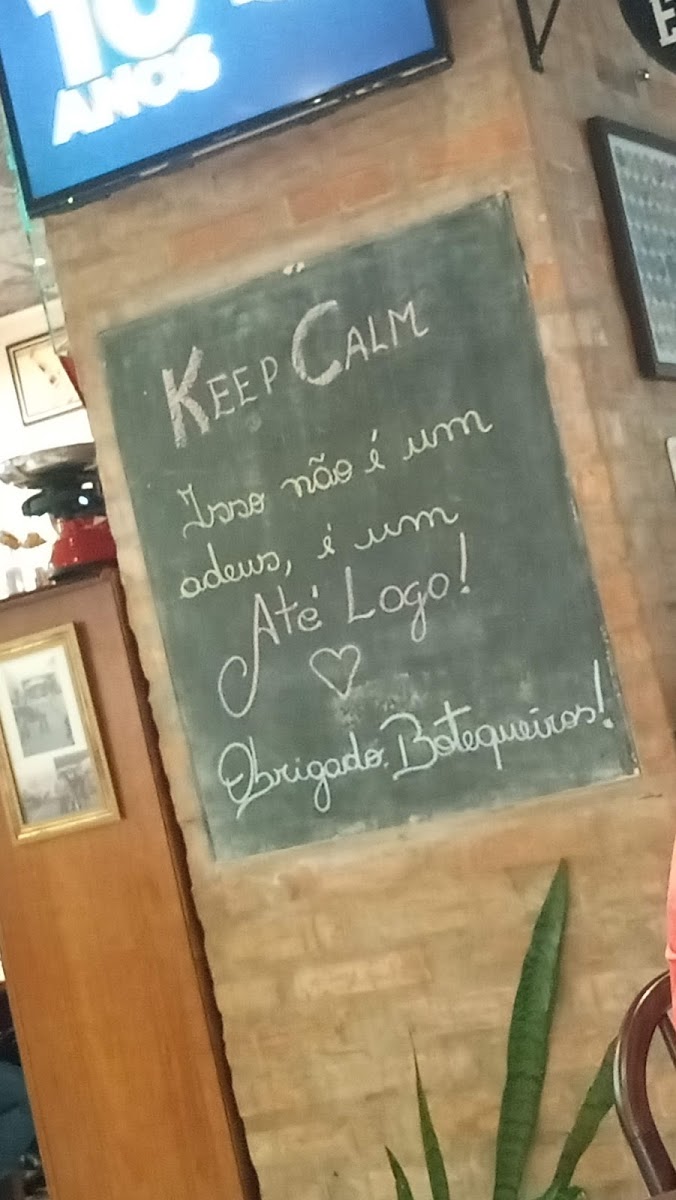 10
ANOS
KEEP CALM
Isso não é um
adeus, é um
Até Logo!
Obrigado. Botequeiros!